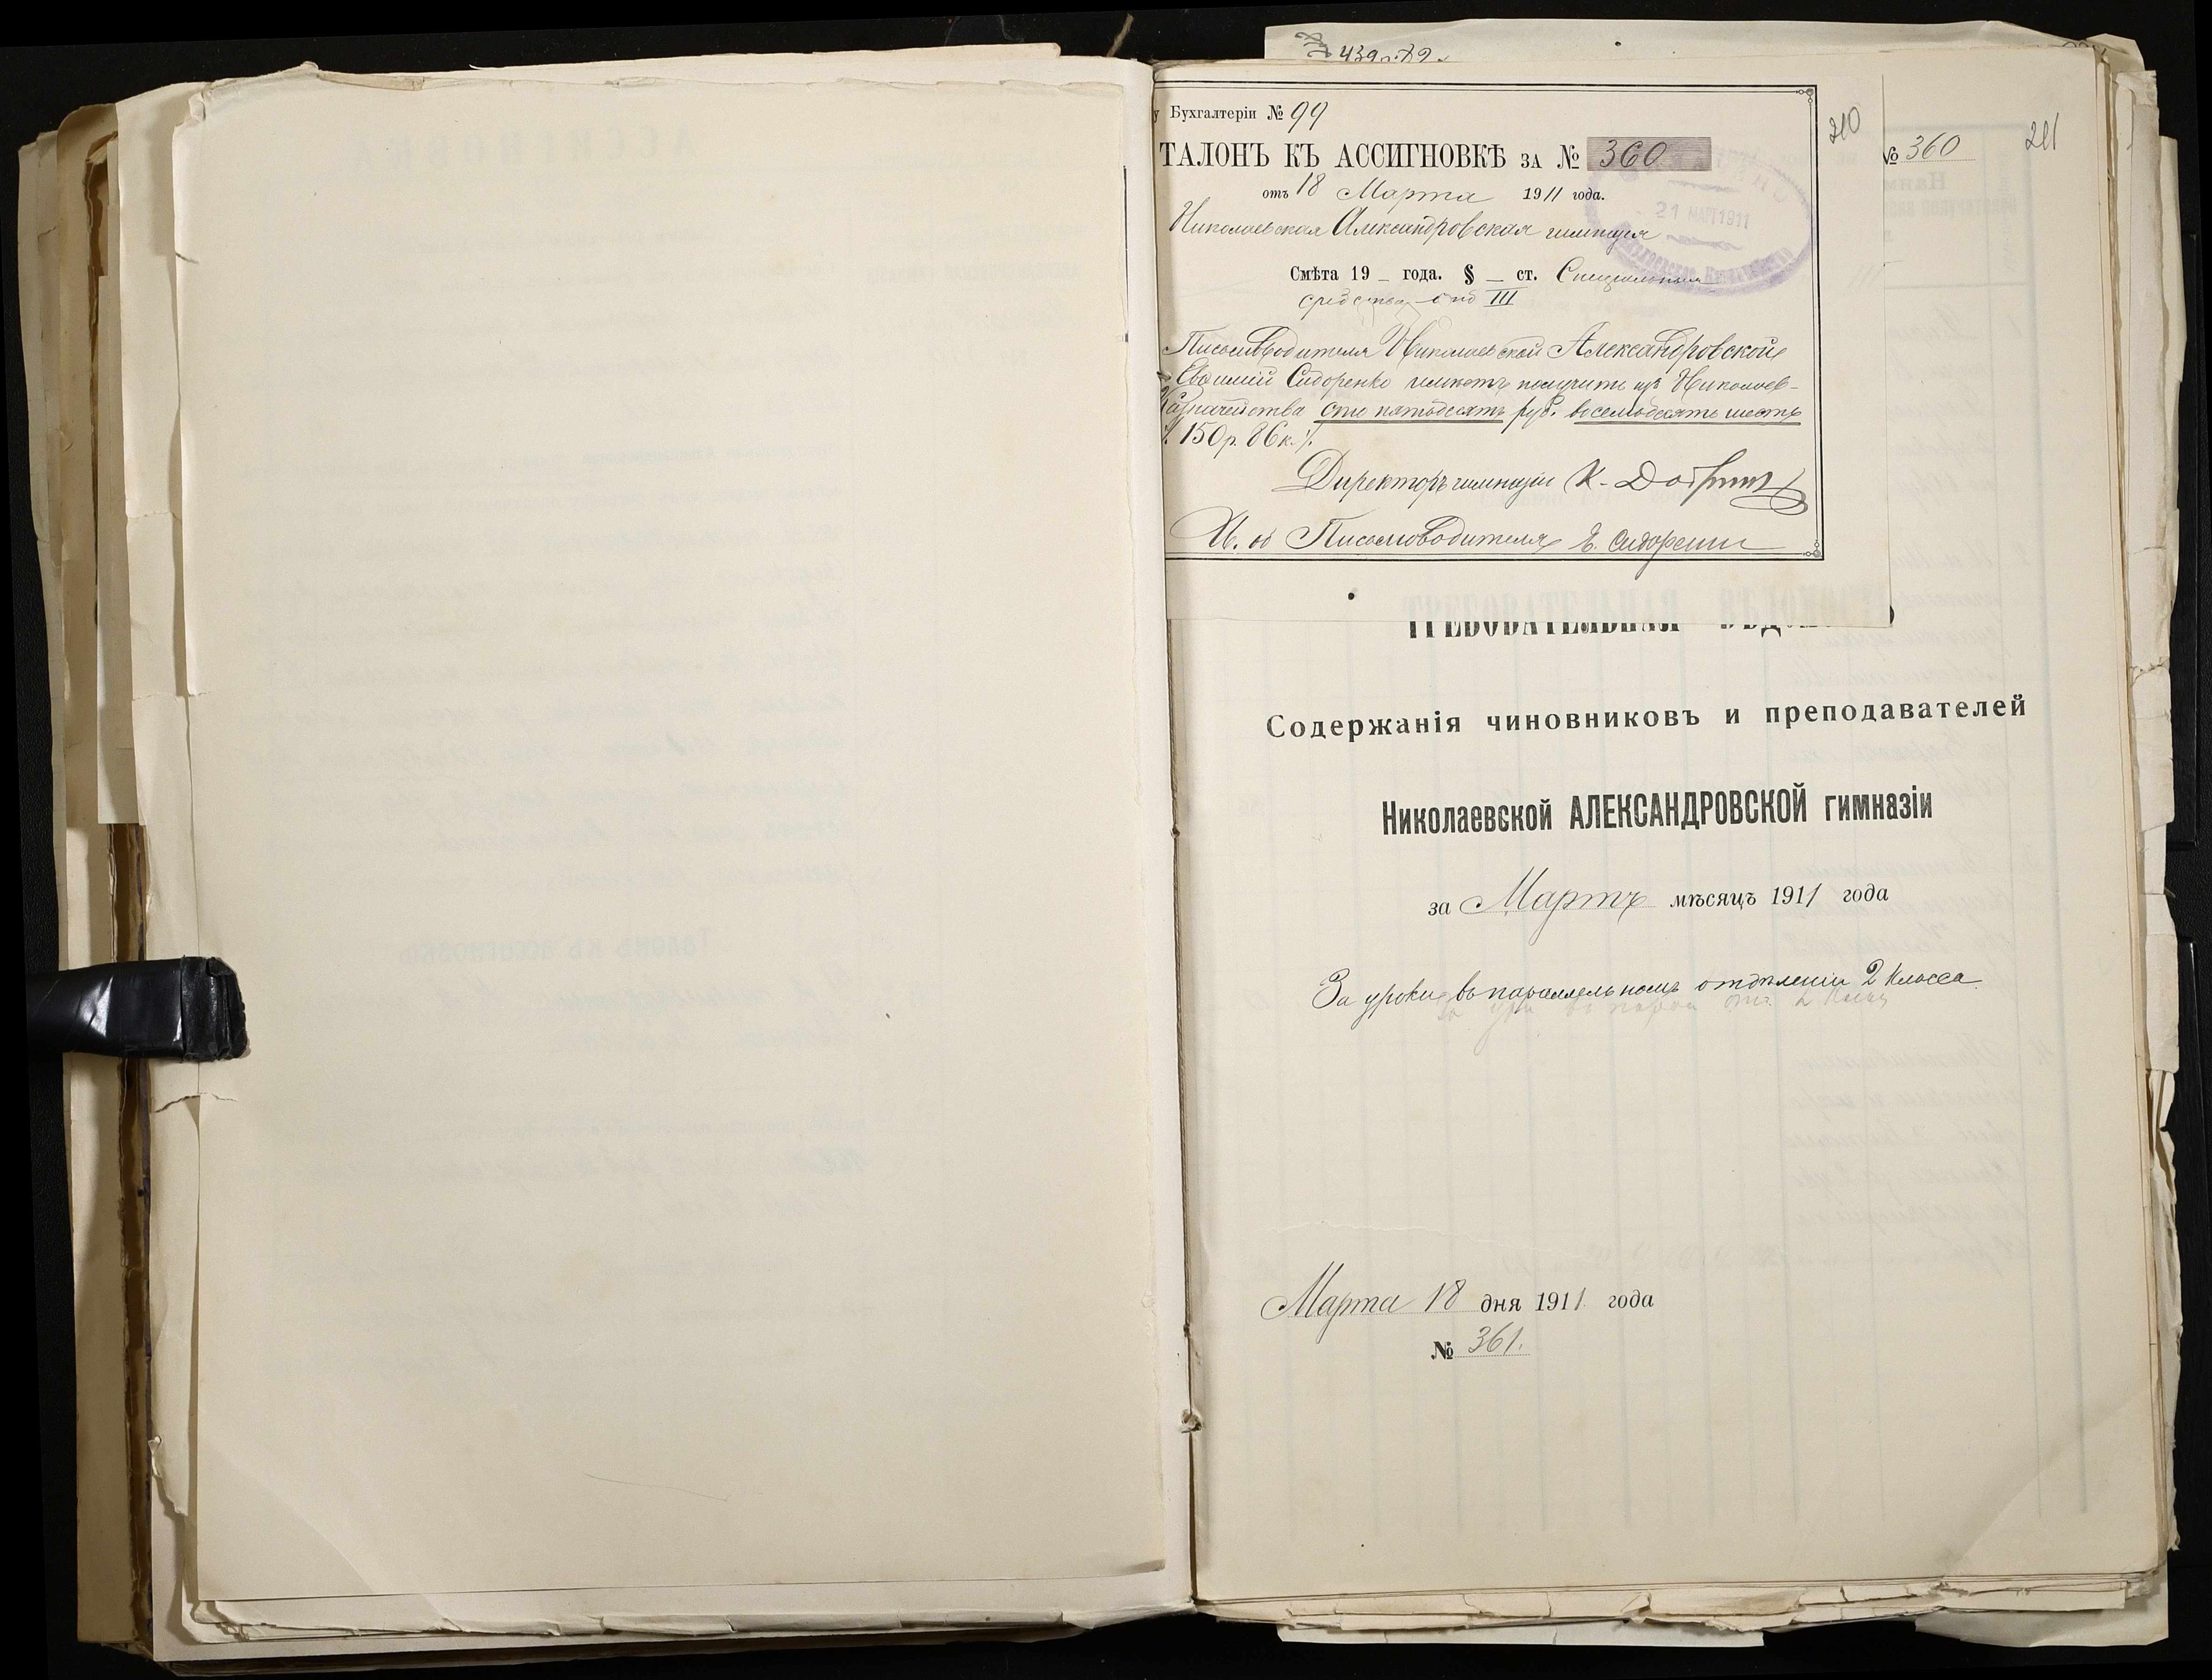 439 р. 79
у Бухгалтеріи № 99
ТАЛОНЪ КЪ АССИГНОВКѢ ЗА № 360
отъ 18 Марта 1911 года.
Николаевская Александровская гимназія
21 МАР 1911
Смѣта 19 – года. § – ст. Спеціальныя
средства
III
Письмоводителя Николаевской Александровской
Евѳимій Сидоренко имѣетъ получить изъ Николаев-
Казначейства сто пятьдесятъ руб. восемьдесятъ шесть
/. 150 р. 86 к. /.
Директоръ гимназіи К.
И. об Письмоводителя Е. Сидоренко
210
№ 360
211
ТРЕБОВАТЕЛЬНАЯ
Содержанія чиновниковъ и преподавателей
Николаевской АЛЕКСАНДРОВСКОЙ гимназіи
за Мартъ мѣсяцъ 1911 года
За уроки въ параллельномъ отдѣленіи 2 класса
Марта 18 дня 1911 года
№ 361.